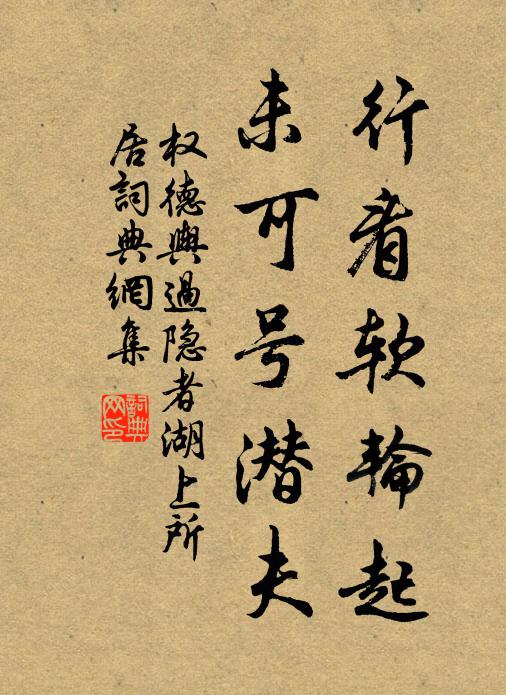 行看软輪起
未可号潜夫
权德輿過隐者湖上所
居詞典網集
詞典
网印